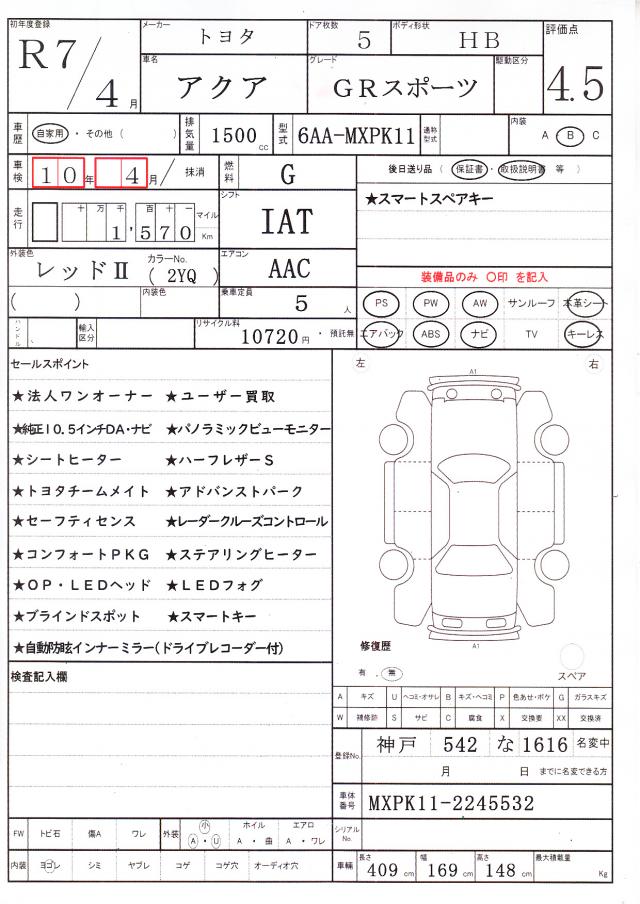 初年度登録 R7/4月
メーカー トヨタ ドア枚数 5 ボディ形状 HB 評価点 4.5
車名 アクア グレード GRスポーツ 駆動区分
車歴 自家用・その他( ) 排気量 1500cc 型式 6AA-MXPK11 通称型式 内装 A B C
車検 10年 4月/ 抹消 燃料 G 後日送り品 ( 保証書・取扱説明書 等 )
走行 十 万 千 百 十 一 マイル Km 1,570 シフト IAT ★スマートスペアキー
外装色 レッドⅡ カラーNo. ( 2YQ ) エアコン AAC 装備品のみ 〇印 を記入
( ) 内装色 乗車定員 5人 PS PW AW サンルーフ 本革シート
ハンドル 輸入区分 リサイクル料 10720円・預託無 エアバック ABS ナビ TV キーレス
セールスポイント 左 右
★法人ワンオーナー ★ユーザー買取
★純正10.5インチDA・ナビ ★パノラミックビューモニター
★シートヒーター ★ハーフレザーS
★トヨタチームメイト ★アドバンストパーク
★セーフティセンス ★レーダークルーズコントロール
★コンフォートPKG ★ステアリングヒーター
★OP・LEDヘッド ★LEDフォグ
★ブラインドスポット ★スマートキー
★自動防眩インナーミラー(ドライブレコーダー付)
A1
A1
修復歴
有 . 無 スペア
検査記入欄
A キズ U ヘコミ・オサレ B キズ・ヘコミ P 色あせ・ボケ G ガラスキズ
W 補修跡 S サビ C 腐食 X 交換要 XX 交換済
登録No. 神戸 542 な 1616 名変中
月 日 までに名変できる方
車体番号 MXPK11-2245532
FW トビ石 傷A ワレ 外装 小 A・U ホイル A・曲 エアロ A・ワレ シリアルNo.
内装 ヨゴレ シミ ヤブレ コゲ コゲ穴 オーディオ穴 車輛 長さ 409cm 幅 169cm 高さ 148cm 最大積載量 Kg